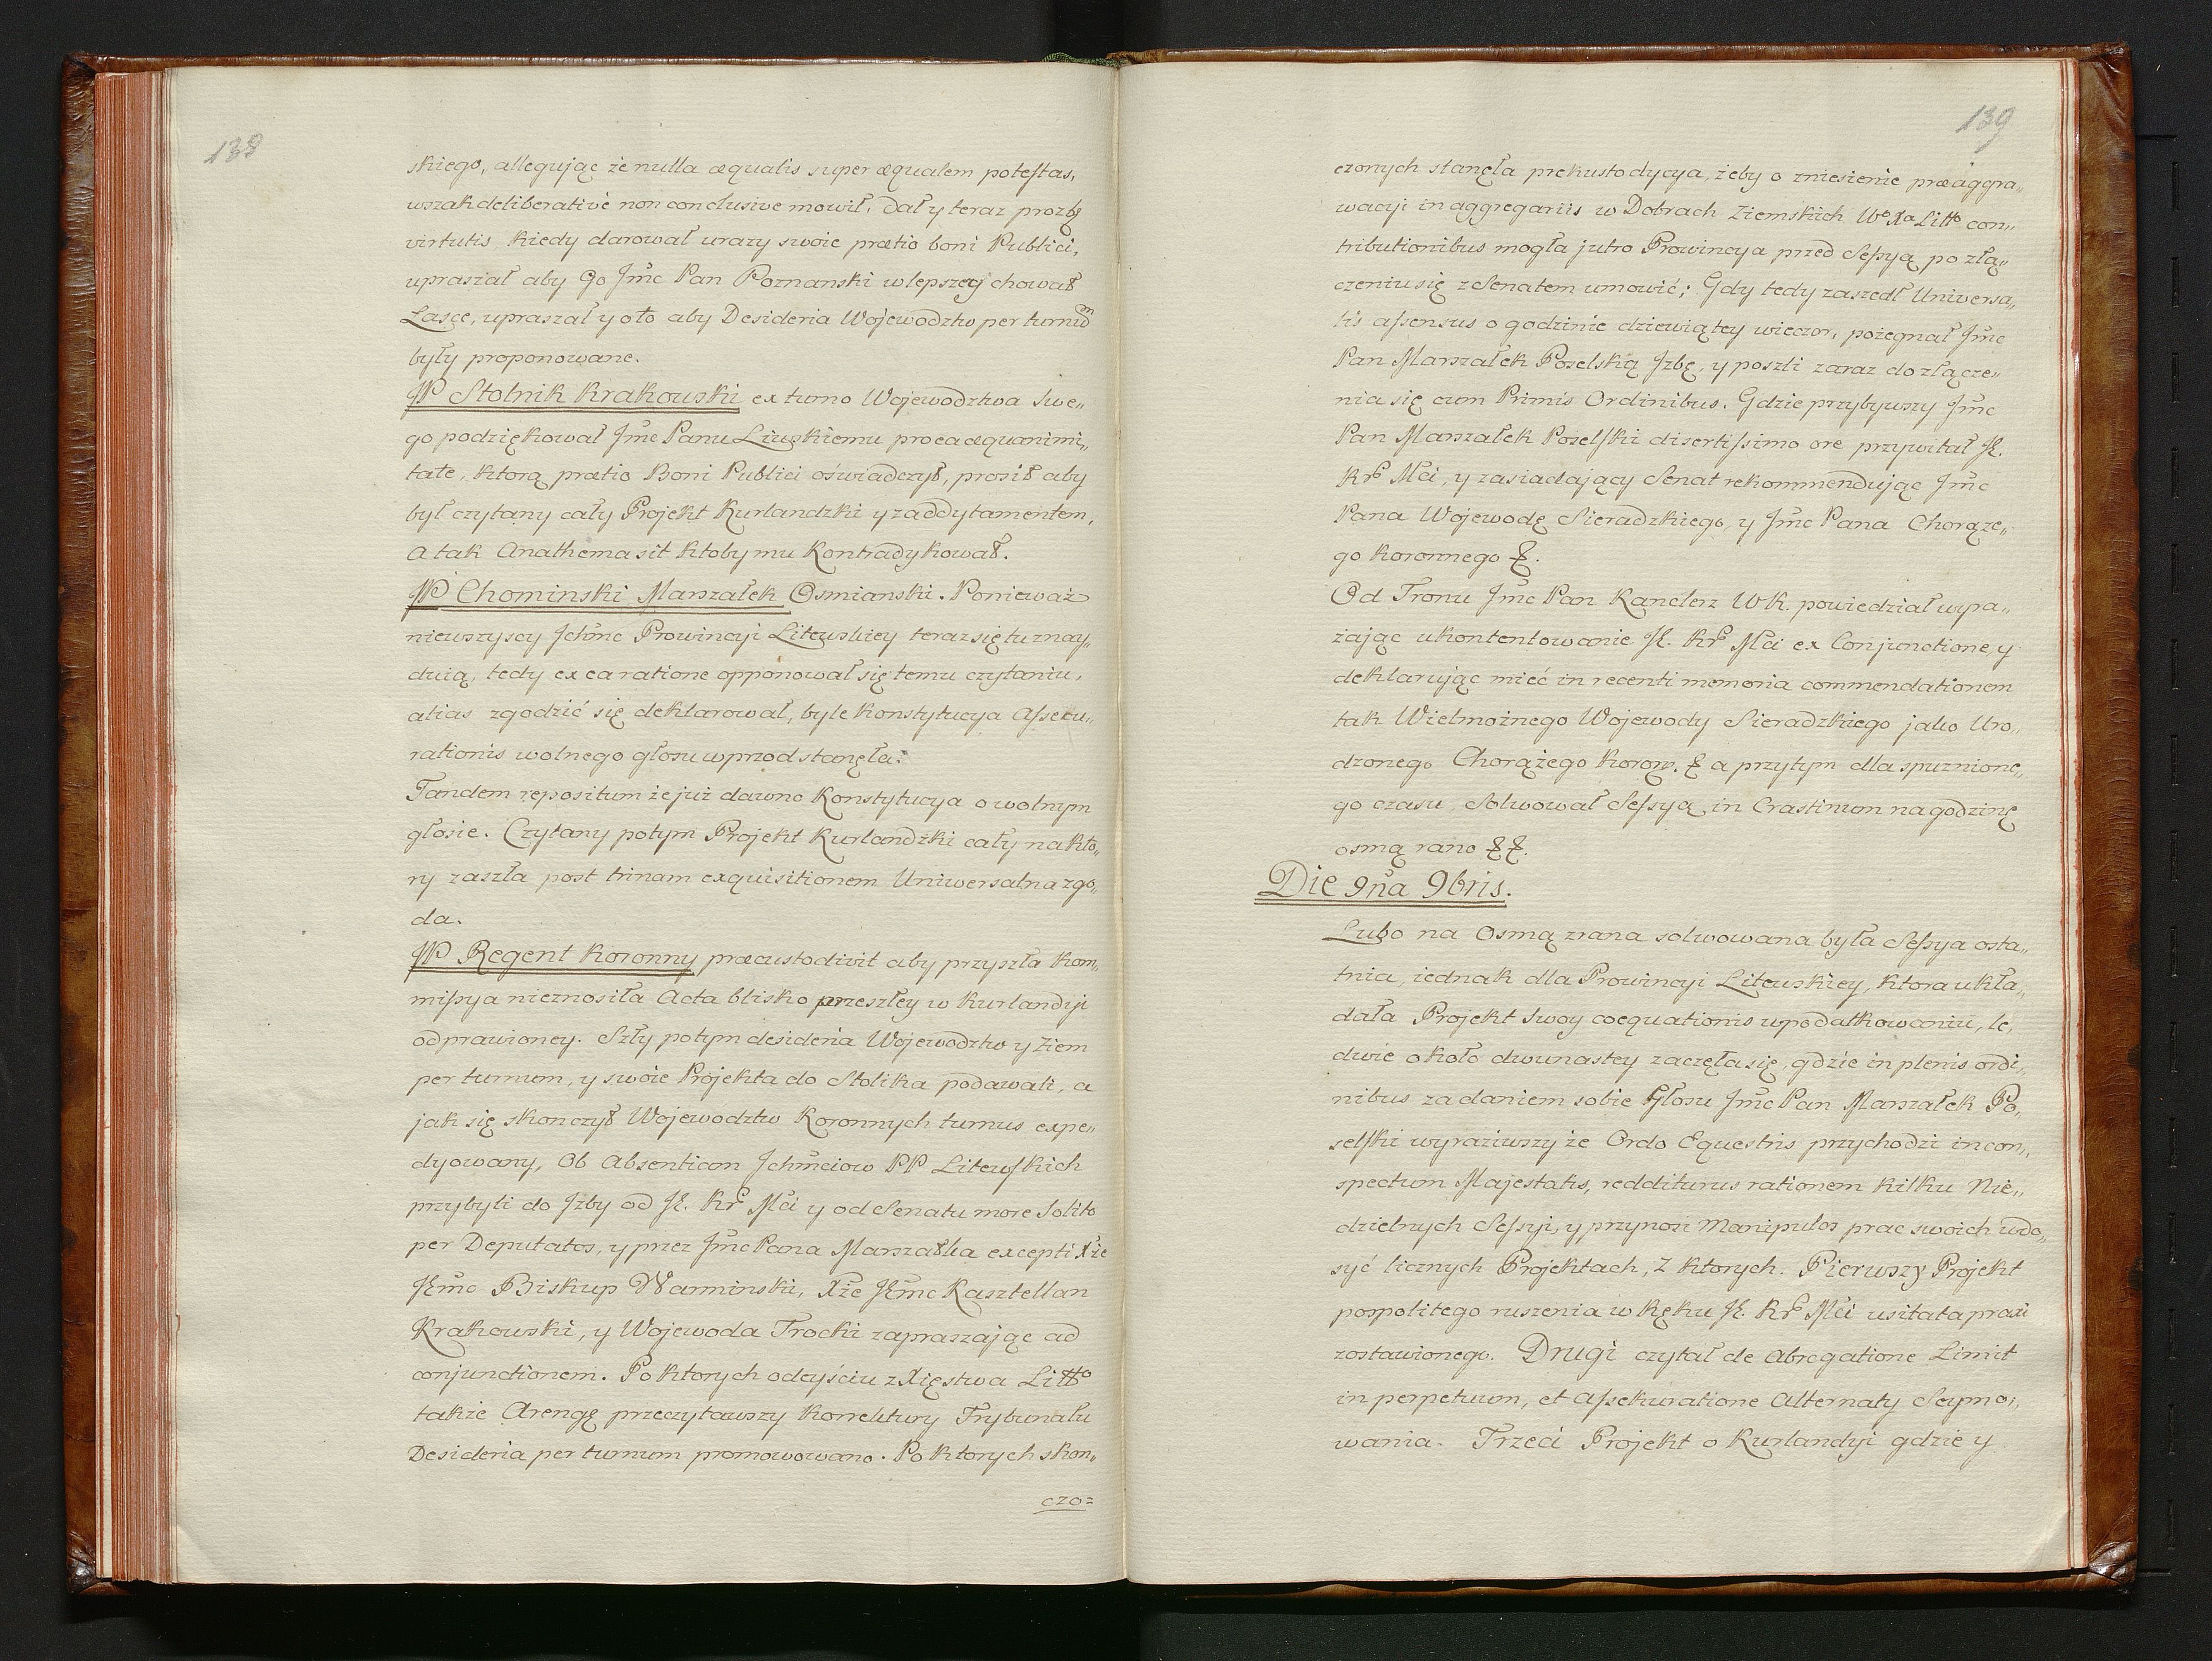 138
skiego, allegując że nulla æqualis super æqualem potestas,
wszak deliberativè non conclusive mowił, Dał y teraz prozbę
virtutis kiedy darował urazy swoie prætio boni Publici,
upraszał aby Go Jmć Pan Poznanski w lepszey chował
Łasce, upraszał y o to aby Desideria Wojewodztw per turnũ
były proponowane.
JP Stolnik Krakowski ex turno Wojewodztwa Swe„
go podziękował Jmć Panu Liwskiemu pro ea æquanimi„
tate, ktorą prætio Boni Publici oświadczył, prosił aby
był czytany cały Projekt Kurlandzki y z addytamentem,
a tak Anathema sit ktoby mu Kontradykował.
JP Chominski Marszałek Osmianski. Ponieważ
niewszyscy Ichmć Prowincyi Litewskiey teraz się tu znay„
duią, tedy ex ea ratione opponował się temu czytaniu,
alias zgodzić się deklarował, byle Konstytucya Assecu„
rationis wolnego głosu wprzod stanęła.
Tandem repositum że już dawno Konstytucya o wolnym
głosie. Czytany potym Projekt Kurlandzki cały na kto„
ry zaszła post trinam exquisitionem Uniwersalna zgo„
da.
JP Regent Koronny præcustodivit aby przyszła Kom„
missya nieznosiła Acta blisko przeszłey w Kurlandyi
odprawioney. Szły potym desideria Wojewodztw y Ziem
per turnum, y swoie Projekta do Stolika podawali, a
jak się skonczył Wojewodztw Koronnych turnus expe„
dyowany, Ob Absentiam Ichmciow PP Litewskich
przybyli do Jzby od JK. Kr Mci y od Senatu more Solito
per Deputatos, y przez Jmć Pana Marszałka excepti Xże
JEmć Biskup Warminski, Xże JEmć Kasztellan
Krakowski, y Wojewoda Trocki zapraszając ad
conjunctionem. Po ktorych odeyściu z Xięstwa Litto
także Arengę przeczytawszy Korrektury Trybunału
Desideria per turnum promowowano. Po ktorych skon„
czo=
139
czonych stanęła prekustodycya, żeby o zniesienie præaggra„
wacyi in aggregariis w Dobrach Ziemskich Wo Xa Litto con„
tributionibus mogła jutro Prowincya przed Sessyą po złą„
czeniu się z Senatem umowić; Gdy tedy zaszedł Universa„
lis assensus o godzinie dziewiątey wieczor, pożegnał Jmć
Pan Marszałek Poselską Jzbę, y poszli zaraz do złącze„
nia się cum Primis Ordinibus. Gdzie przybywszy Jmć
Pan Marszałek Poselski disertissimo ore przywitał JK.
Kr Mci, y zasiadający Senat rekommendując Jmć
Pana Wojewodę Sieradzkiego, y Jmć Pana Chorąże„
go Koronnego &.
Od Tronu Jmć Pan Kanclerz WK. powiedział wyra„
żając ukontentowanie JK. Kr Mci ex Conjunctione, y
deklarując mieć in recenti memoria commendationem
tak Wielmożnego Wojewody Sieradzkiego jako Uro„
dzonego Chorążego Koron. & a przytym dla spuznione„
go czasu Solwował Sessyą in Crastinum na godzinę
osmą rano &&.
Die 9na 9bris.
Lubo na Osmą zrana solwowana była Sessya osta„
tnia, iednak dla Prowincyi Litewskiey, ktora ukła„
dała Projekt swoy coequationis w podatkowaniu, le„
dwie około dwunastey zaczęła się, gdzie in plenis ordi„
nibus za daniem sobie Głosu Jmć Pan Marszałek Po„
selski wyraziwszy że Ordo Equestris przychodzi in con„
spectum Majestatis, redditurus rationem kilku Nie„
dzielnych Sessyi, y przynosi Manipulos prac swoich wdo„
syć licznych Projektach, Z ktorych. Pierwszy Projekt
pospolitego ruszenia w Ręku JK. Kr Mci usitata praxi
zostawionego. Drugi czytał de Abrogatione Limit
in perpetuum, et Assekuratione Alternaty Seymo„
wania. Trzeci Projekt o Kurlandyi gdzie y